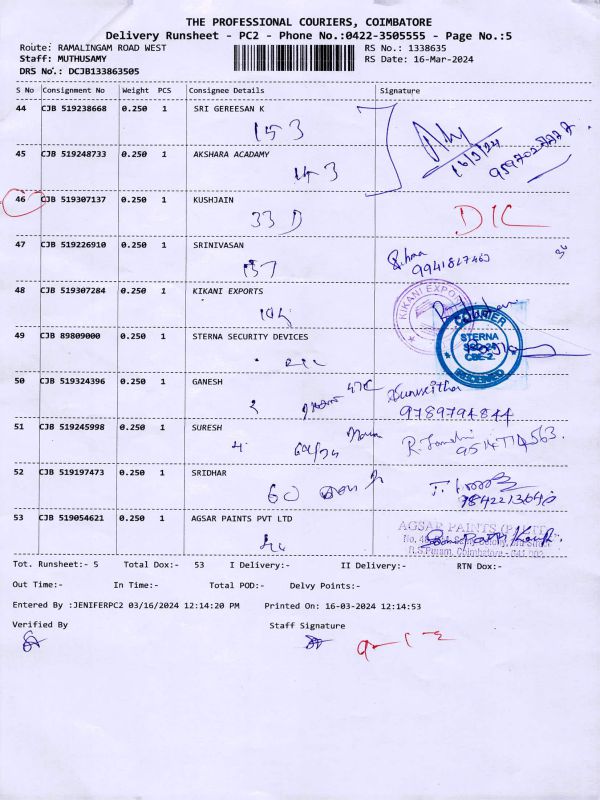 THE PROFESSIONAL COURIERS, COIMBATORE
Delivery Runsheet - PC2 - Phone No.:0422-3505555 - Page No.:5
Route: RAMALINGAM ROAD WEST
RS No.: 1338635
Staff: MUTHUSAMY
RS Date: 16-Mar-2024
DRS No.: DCJB133863505
S No Consignment No Weight PCS Consignee Details Signature
44 CJB 519238668 0.250 1 SRI GEREESAN K
153
16/3/24
45 CJB 519248733 0.250 1 AKSHARA ACADAMY
143
46 CJB 519307137 0.250 1 KUSHJAIN
33 D
47 CJB 519226910 0.250 1 SRINIVASAN
157
9941827463
48 CJB 519307284 0.250 1 KIKANI EXPORTS
KIKANI EXPOR
49 CJB 89809000 0.250 1 STERNA SECURITY DEVICES
COURIER
STERNA
CBE-2
RECEIVED
50 CJB 519324396 0.250 1 GANESH
2
9789794844
51 CJB 519245998 0.250 1 SURESH
4
52 CJB 519197473 0.250 1 SRIDHAR
60
9842213640
53 CJB 519054621 0.250 1 AGSAR PAINTS PVT LTD
AGSAR PAINTS (P) LTD
R.S Puram, Coimbatore - 641 002
Tot. Runsheet:- 5 Total Dox:- 53 I Delivery:- II Delivery:- RTN Dox:-
Out Time:- In Time:- Total POD:- Delvy Points:-
Entered By :JENIFERPC2 03/16/2024 12:14:20 PM Printed On: 16-03-2024 12:14:53
Verified By Staff Signature